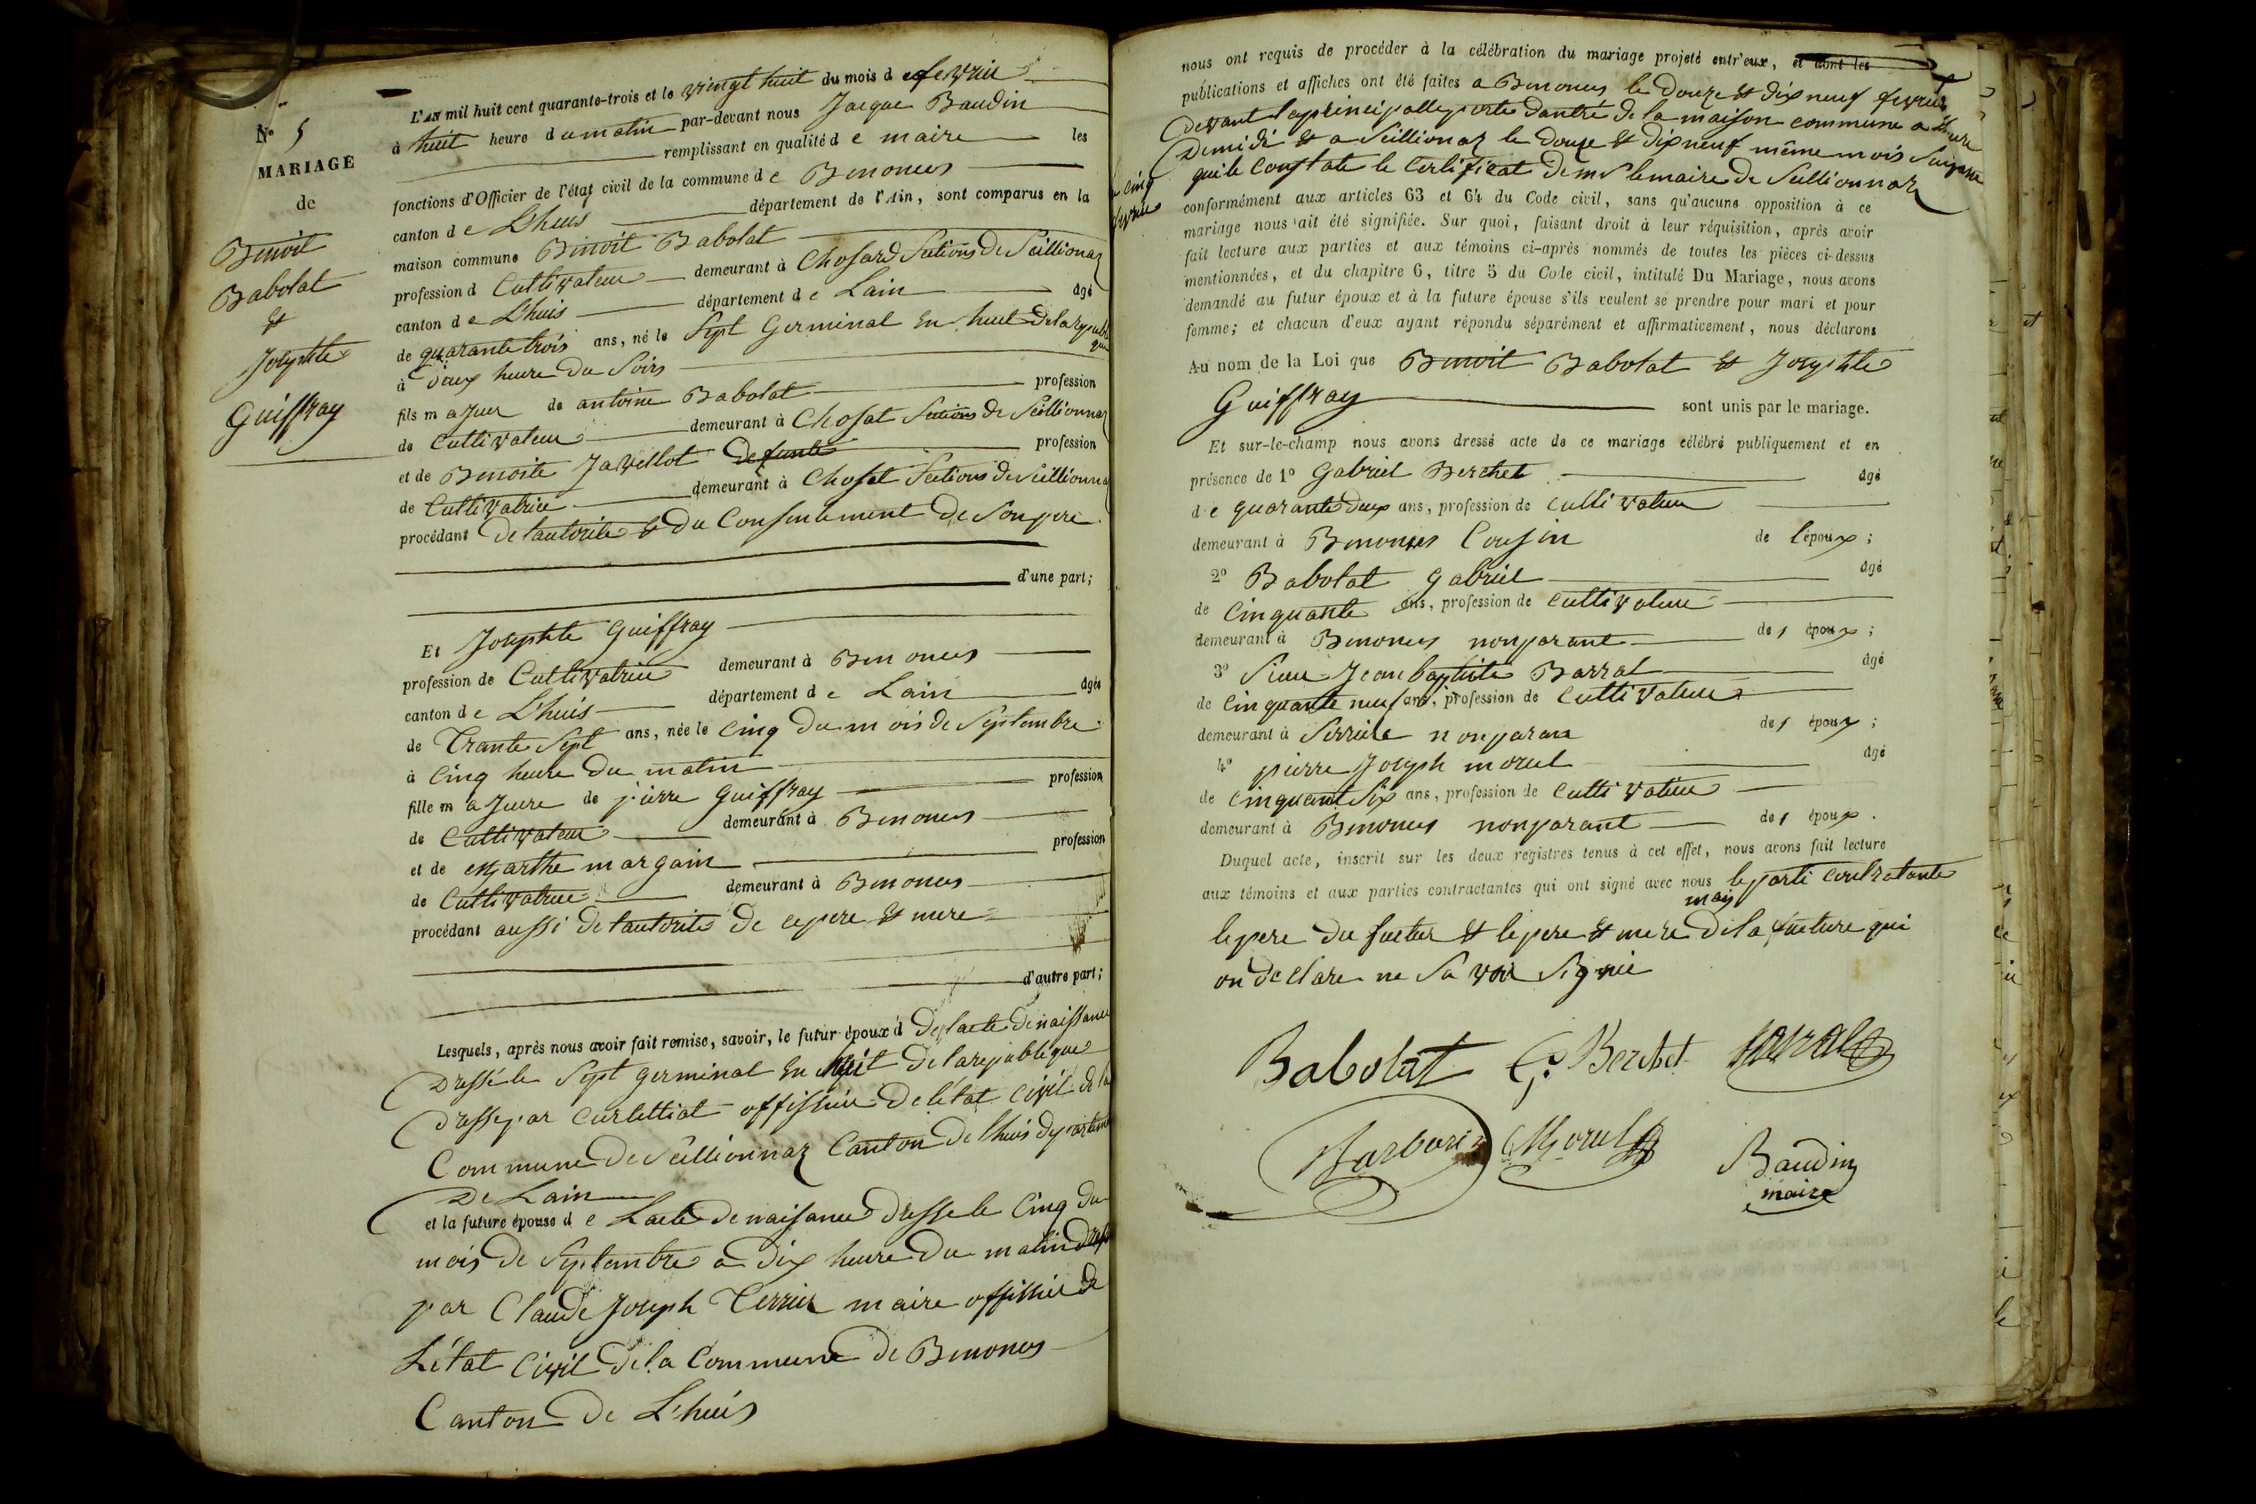 N° 5
MARIAGE
de
Benoit
Babolat
&
Josephte
Guiffray
L'AN mil huit cent quarante-trois et le vingt huit du mois d e fevrie
à huit heure d u matin par-devant nous Jacque Baudin
remplissant en qualité d e maire les
fonctions d'Officier de l'état civil de la commune d e Benonces
canton d e Lhuis département de l'Ain, sont comparus en la
maison commune Benoit Babolat
profession d Cultivateur demeurant à Chosard Sections De Seillionaz
canton d e L'huis département d e Lain âgé
de quarante trois ans, né le Sept Germinal en huit de la republique
à Deux heure du Soirs
fils m ajeur de antoine Babolat profession
de Cultivateur demeurant à Chosat Sections De Seillionnaz
et de Benoite Javellot Defunte profession
de Cultivatrice demeurant à Chosat Sections De Seillionnaz
procédant De lautorite & du Consentement De Son pere
d'une part;
Et Josephte Guiffray
profession de Cultivatrice demeurant à Benonces
canton d e L'huis département d e Lain âgée
de Trante Sept ans, née le cinq du mois de Septembre
à cinq heure du matin
fille m ajeure de pierre Guiffray profession
de Cultivateur demeurant à Benonces
et de Marthe margain profession
de Cultivatrice demeurant à Benonces
procédant aussi de lautorite de ce pere & mere
d'autre part;
Lesquels, après nous avoir fait remise, savoir, le futur époux d De lacte de naissance
Dressé le Sept germinal en huit de la republique
Dresse par Curlettiat offissier de létat civil de la
Commune De Seillionnaz Canton de lhuis departement
De Lain
et la future épouse d e Lacte de naisance dresse le cinq du
mois de Septembre a dix heure du matin dresse
par Claude Joseph Terrier maire offissier de
L'état civil de la Commune de Benonces
Canton De L'huis
nous ont requis de procéder à la célébration du mariage projeté entr'eux, et dont les
publications et affiches ont été faites a Benonces le Douze & dix neuf fevrier
devant la principalle porte dantré de la maison commune a lheure
De midi & a Seillionaz le douze & dix neuf même mois Suivant
quile Constate le Certificat De mr le maire de Seillionnaz
cinq
fevrie
conformément aux articles 63 et 64 du Code civil, sans qu'aucune opposition à ce
mariage nous ait été signifiée. Sur quoi, faisant droit à leur réquisition, après avoir
fait lecture aux parties et aux témoins ci-après nommés de toutes les pièces ci-dessus
mentionnées, et du chapitre 6, titre 5 du Code civil, intitulé Du Mariage, nous avons
demandé au futur époux et à la future épouse s'ils veulent se prendre pour mari et pour
femme; et chacun d'eux ayant répondu séparément et affirmativement, nous déclarons
Au nom de la Loi que Benoit Babolat & Josephte
Guiffray sont unis par le mariage.
Et sur-le-champ nous avons dressé acte de ce mariage célébré publiquement et en
présence de 1° Gabriel Berchet âgé
d e quarante Deux ans, profession de Cultivateur
demeurant à Benonces Cousin de l'époux;
2° Babolat Gabriel âgé
de Cinquante ans, profession de Cultivateur
demeurant à Benonces non parant des époux;
3° Sieur Jean baptiste Barral âgé
de Cinquante neuf ans, profession de Cultivateur
demeurant à Serriere non parant des époux;
4° pierre Joseph morel âgé
de Cinquant Six ans, profession de Cultivateur
demeurant à Benonces non parant des époux.
Duquel acte, inscrit sur les deux registres tenus à cet effet, nous avons fait lecture
aux témoins et aux parties contractantes qui ont signé avec nous le parti Contratante
mais
le pere du fuctur & le pere & mere de la fucture qui
on declare ne Savoir Signie
Babolat G. Berchet Barral
Morel
Baudin
maire